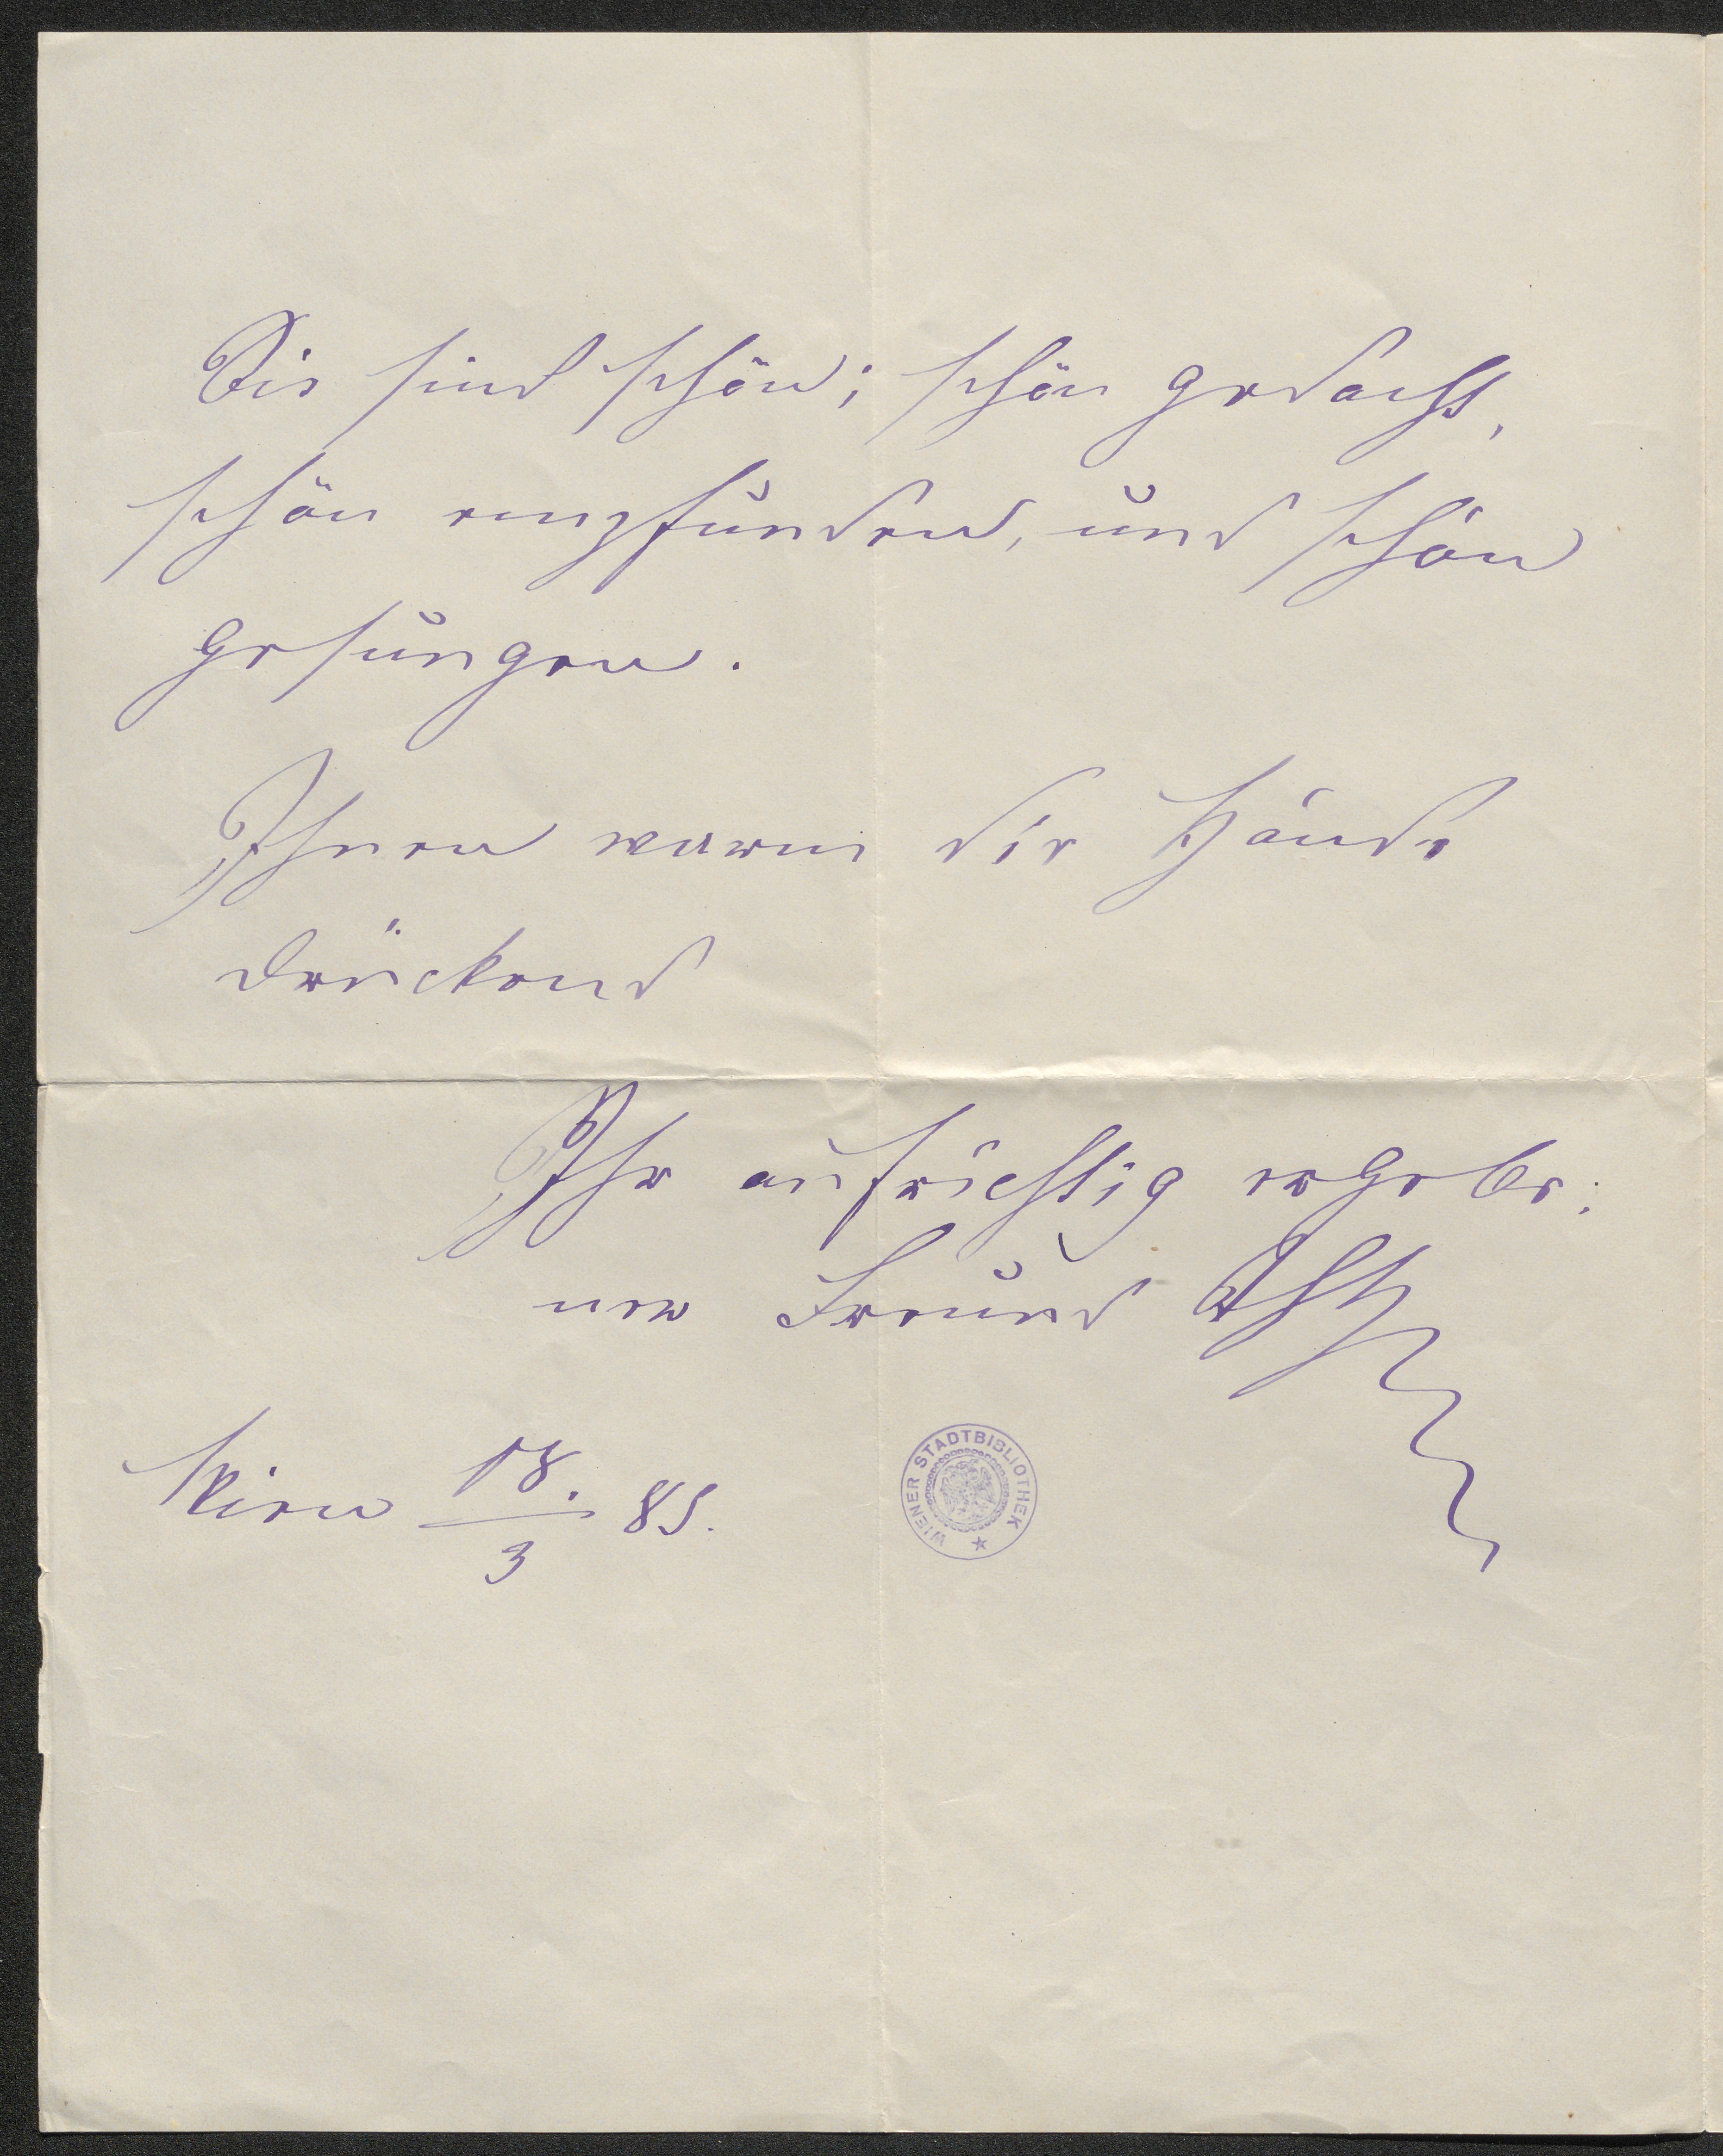 Die sind schön; schön gedacht,
schön empfunden, und schön
gesungen.
Ihnen warm die Hände
drückend
Ihr aufrichtig ergebe:
ner Freund
Wien 18./3 85.
WIENER STADTBIBLIOTHEK